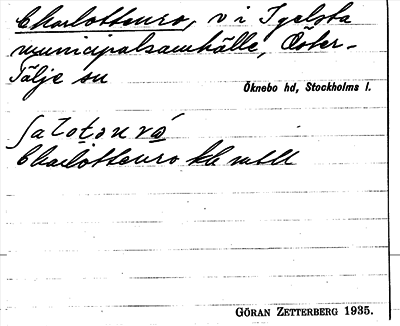 Charlottenro, v i Igelsta
municipalsamhälle, Öster-
Tälje sn
Öknebo hd, Stockholms l.
Charlottenro
GÖRAN ZETTERBERG 1935.